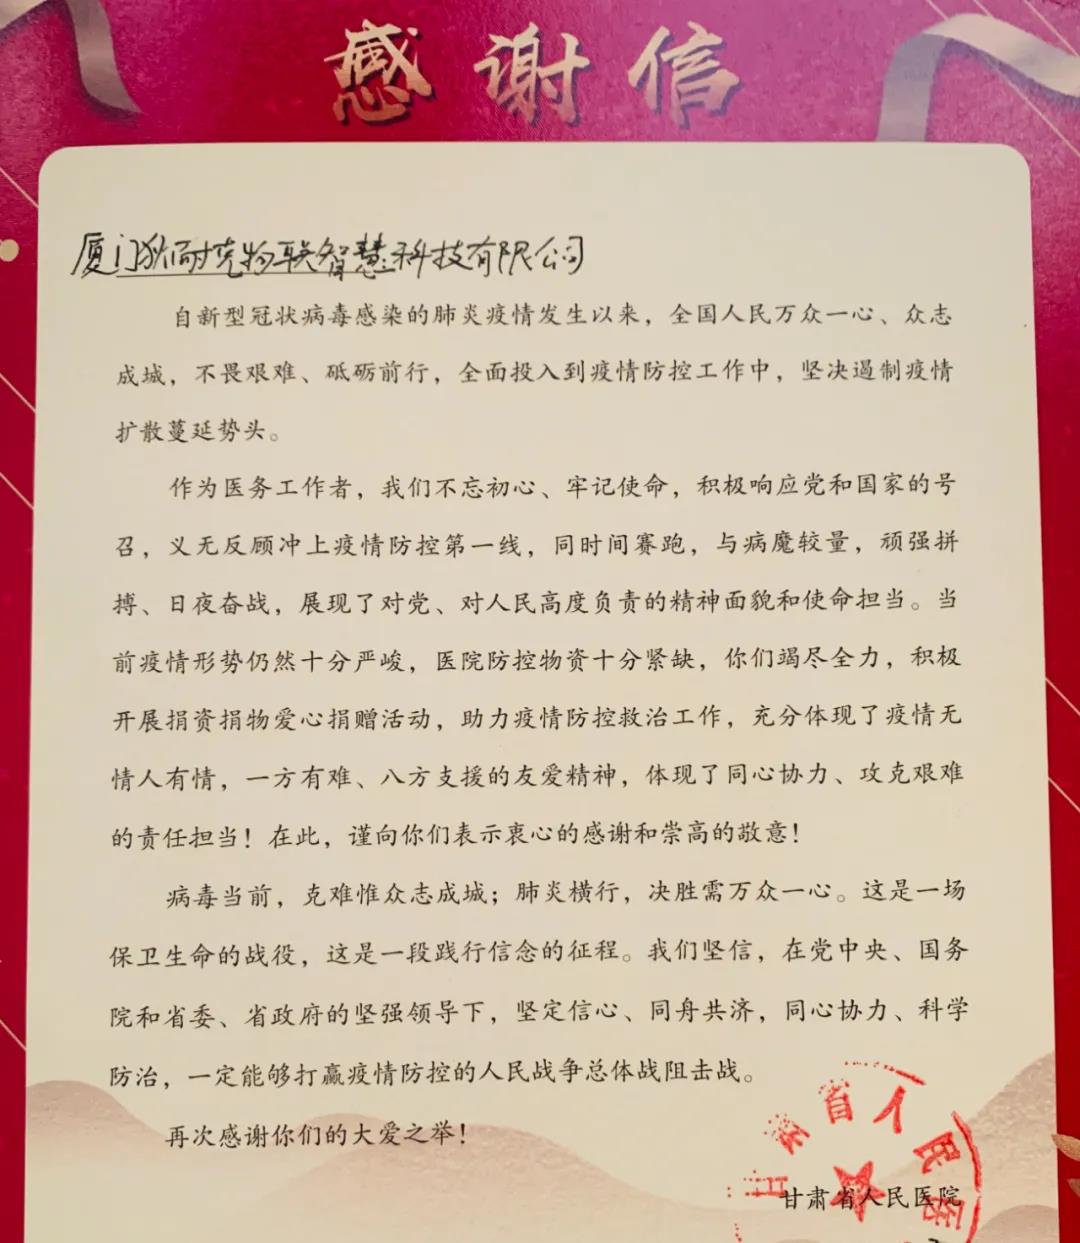 感谢信
厦门狄耐克物联智慧科技有限公司
自新型冠状病毒感染的肺炎疫情发生以来，全国人民万众一心、众志
成城，不畏艰难、砥砺前行，全面投入到疫情防控工作中，坚决遏制疫情
扩散蔓延势头。
作为医务工作者，我们不忘初心、牢记使命，积极响应党和国家的号
召，义无反顾冲上疫情防控第一线，同时间赛跑，与病魔较量，顽强拼
搏、日夜奋战，展现了对党、对人民高度负责的精神面貌和使命担当。当
前疫情形势仍然十分严峻，医院防控物资十分紧缺，你们竭尽全力，积极
开展捐资捐物爱心捐赠活动，助力疫情防控救治工作，充分体现了疫情无
情人有情，一方有难、八方支援的友爱精神，体现了同心协力、攻克艰难
的责任担当！在此，谨向你们表示衷心的感谢和崇高的敬意！
病毒当前，克难惟众志成城；肺炎横行，决胜需万众一心。这是一场
保卫生命的战役，这是一段践行信念的征程。我们坚信，在党中央、国务
院和省委、省政府的坚强领导下，坚定信心、同舟共济，同心协力、科学
防治，一定能够打赢疫情防控的人民战争总体战阻击战。
再次感谢你们的大爱之举！
甘肃省人民医
甘肃省人民医院